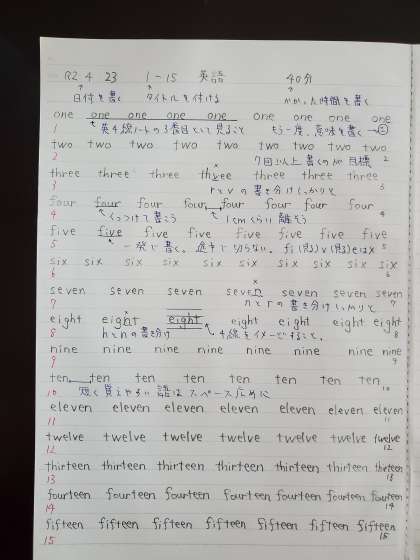 R2 4 23 1-15 英語 40分
日付を書く タイトルを付ける かかった時間を書く
one one one one one one one one
1 英4線ノートの3番目として見ること もう一度、意味を書く→①
two two two two two two two two
2 7回以上書くのが目標 2
three three three thvee three three three
3 rとvの書き分けしっかりと 3
four four four four four four four
4 くっつけて書こう 1cmくらい離そう 4
five five five five five five five
5 一発で書く。途中で切らない。 5
six six six six six six six six
6 6
seven seven seven seven seven seven seven
7 nとrの書き分けしっかりと 7
eight eight eight eight eight eight eight
8 hとnの書き分け 4線をイメージすること。 8
nine nine nine nine nine nine nine
9 9
ten ten ten ten ten ten ten ten
10 短く覚えやすい語はスペース広めに 10
eleven eleven eleven eleven eleven eleven eleven
11 11
twelve twelve twelve twelve twelve twelve twelve
12 12
thirteen thirteen thirteen thirteen thirteen thirteen thirteen
13 13
fourteen fourteen fourteen fourteen fourteen fourteen fourteen
14 14
fifteen fifteen fifteen fifteen fifteen fifteen fifteen
15 15